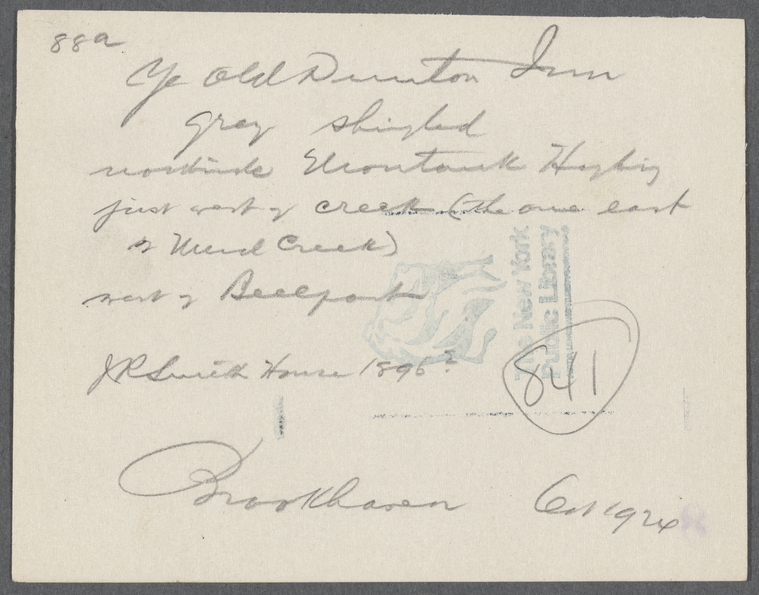 88a
Ye Old Dunton Inn
Grey shingled
northside Montauk Highway
just west of creek (the one east
of Mud Creek)
west of Bellport
The New York
Public Library
JR Smith House 1896?
841
Brookhaven Oct 1924